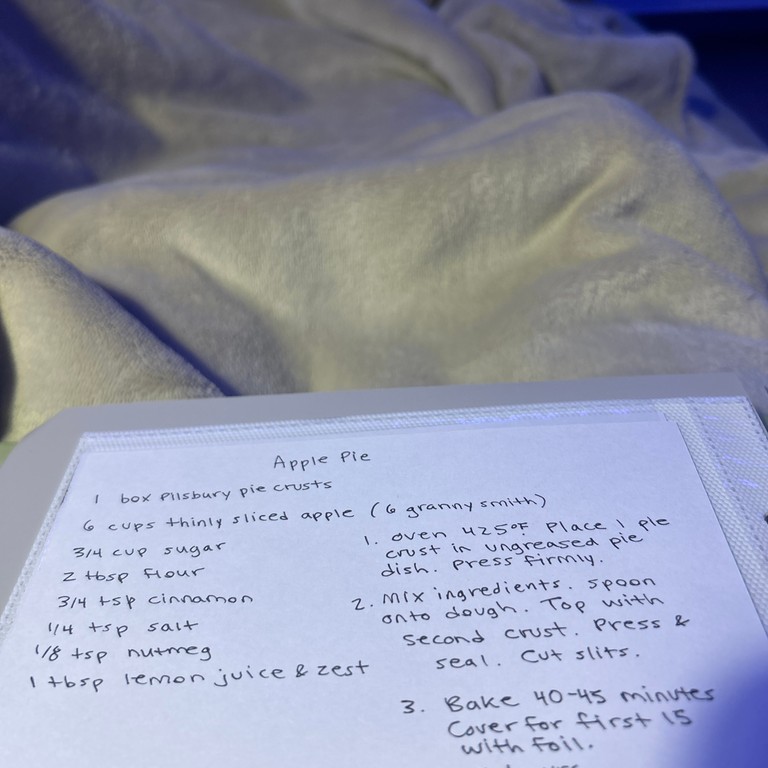 Apple Pie
1 box Pilsbury pie crusts
6 cups thinly sliced apple (6 granny smith)
3/4 cup sugar
2 tbsp flour
3/4 tsp cinnamon
1/4 tsp salt
1/8 tsp nutmeg
1 tbsp lemon juice & zest
1. oven 425°F Place 1 pie
crust in ungreased pie
dish. Press firmly.
2. Mix ingredients. Spoon
onto dough. Top with
second crust. Press &
seal. Cut slits.
3. Bake 40-45 minutes
Cover for first 15
with foil.